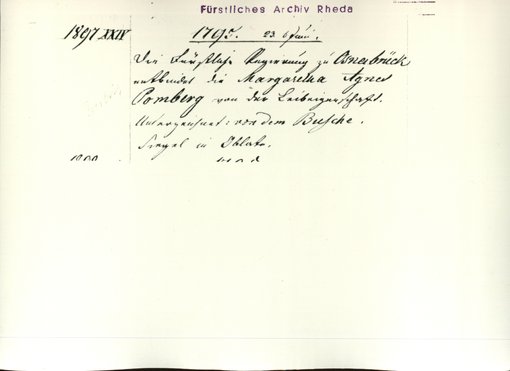 Fürstliches Archiv Rheda
1897 XXIV
1795. 23 Juni.
Die Fürstliche Regierung zu Osnabrück
entbindet die Margaretha Agnes
Pomberg von der Leibeigenschaft.
Unterzeichnet: von dem Busche.
Siegel in Oblate.